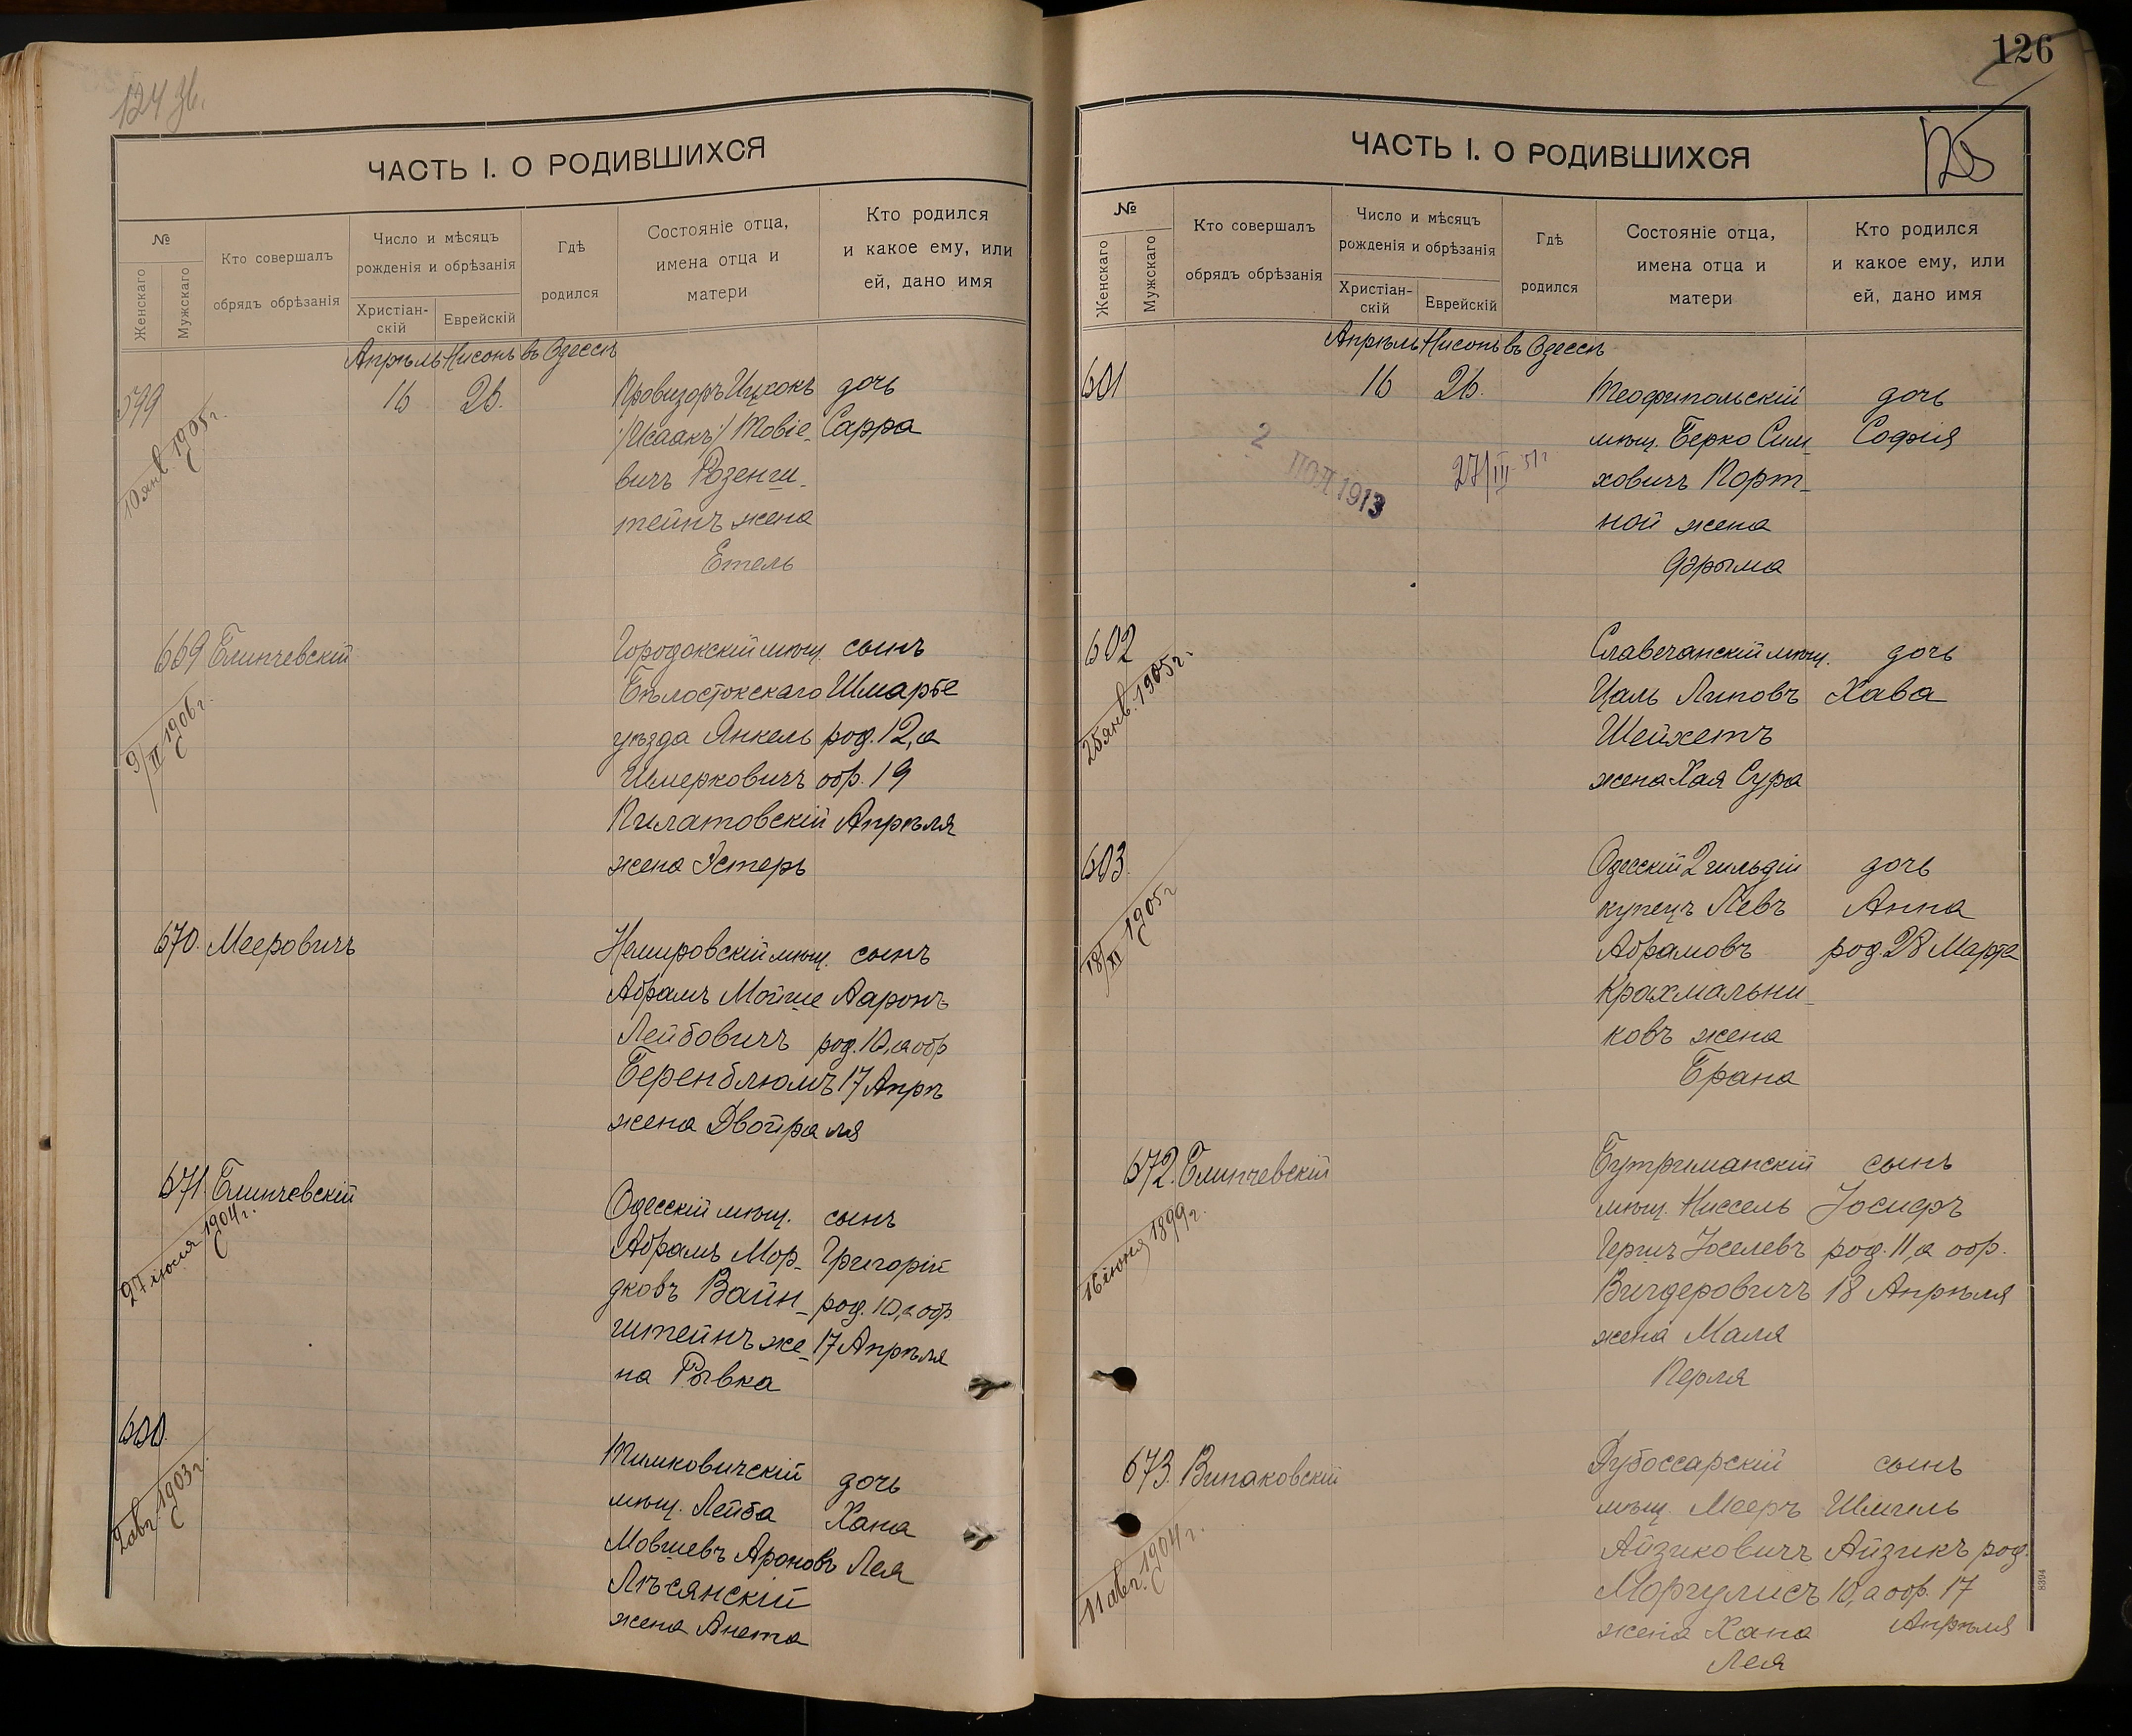 124 об.
ЧАСТЬ I. О РОДИВШИХСЯ
№
Женскаго
Мужскаго
Кто совершалъ
обрядъ обрѣзанія
Число и мѣсяцъ
рожденія и обрѣзанія
Христіан-
скій
Еврейскій
Гдѣ
родился
Состояніе отца,
имена отца и
матери
Кто родился
и какое ему, или
ей, дано имя
Апрѣль Нисонъ въ Одессѣ
599 16 26. Провизоръ Ицхокъ дочь
/Исаакъ/ Товіе- Сарра
вичъ Розенш-
тейнъ жена
Етель
10 янв. 1905 г.
669 Блинчевскій Городокскій мѣщ. сынъ
Бѣлостокскаго Шмарье
уѣзда Янкель род. 12, а
Шмерковичъ обр. 19
Пилатовскій Апрѣля
жена Эстеръ
9/II 1906 г.
670. Мееровичъ Немировскій мѣщ. сынъ
Абрамъ Мойше Ааронъ
Лейбовичъ род. 10, а обр
Беренблюмъ 17 Апрѣ
жена Двойра ля
671 Блинчевскій Одесскій мѣщ. сынъ
Абрамъ Мор- Григорій
дковъ Вайн- род. 10, а обр
штейнъ же- 17 Апрѣля
на Рывка
27 іюля 1904 г.
600. Тимковичскій дочь
мѣщ. Лейба Хана
Мовшевъ Ароновъ Лея
Лѣсянскій
жена Анета
2 авг. 1903 г.
126
125
ЧАСТЬ I. О РОДИВШИХСЯ
№
Женскаго
Мужскаго
Кто совершалъ
обрядъ обрѣзанія
Число и мѣсяцъ
рожденія и обрѣзанія
Христіан-
скій
Еврейскій
Гдѣ
родился
Состояніе отца,
имена отца и
матери
Кто родился
и какое ему, или
ей, дано имя
Апрѣль Нисонъ въ Одессѣ
601 16 26. Теофипольскій дочь
мѣщ. Берко Сим- Софія
ховичъ Порт-
ной жена
Фрыма
2 ПОЛ 1913
27/III 51 г
602 Славечанскій мѣщ. дочь
Цаль Липовъ Хава
Шейхетъ
жена Хая Сура
25 янв. 1905 г.
603. Одесскій 2 гильдіи дочь
купецъ Левъ Анна
Абрамовъ род. 28 Марта
Крахмальни-
ковъ жена
Брана
18/XI 1905 г
672. Блинчевскій Бутриманскій сынъ
мѣщ. Ниссель Іосифъ
Гершъ Іоселевъ род. 11, а обр.
Вигдеровичъ 18 Апрѣля
жена Маля
Перля
16 іюня 1899 г.
673. Винаковскій Дубоссарскій сынъ
мѣщ. Мееръ Шмиль
Айзиковичъ Айзикъ род.
Моргулисъ 10, а обр. 17
жена Хана Апрѣля
Лея
11 авг. 1904 г.
8394